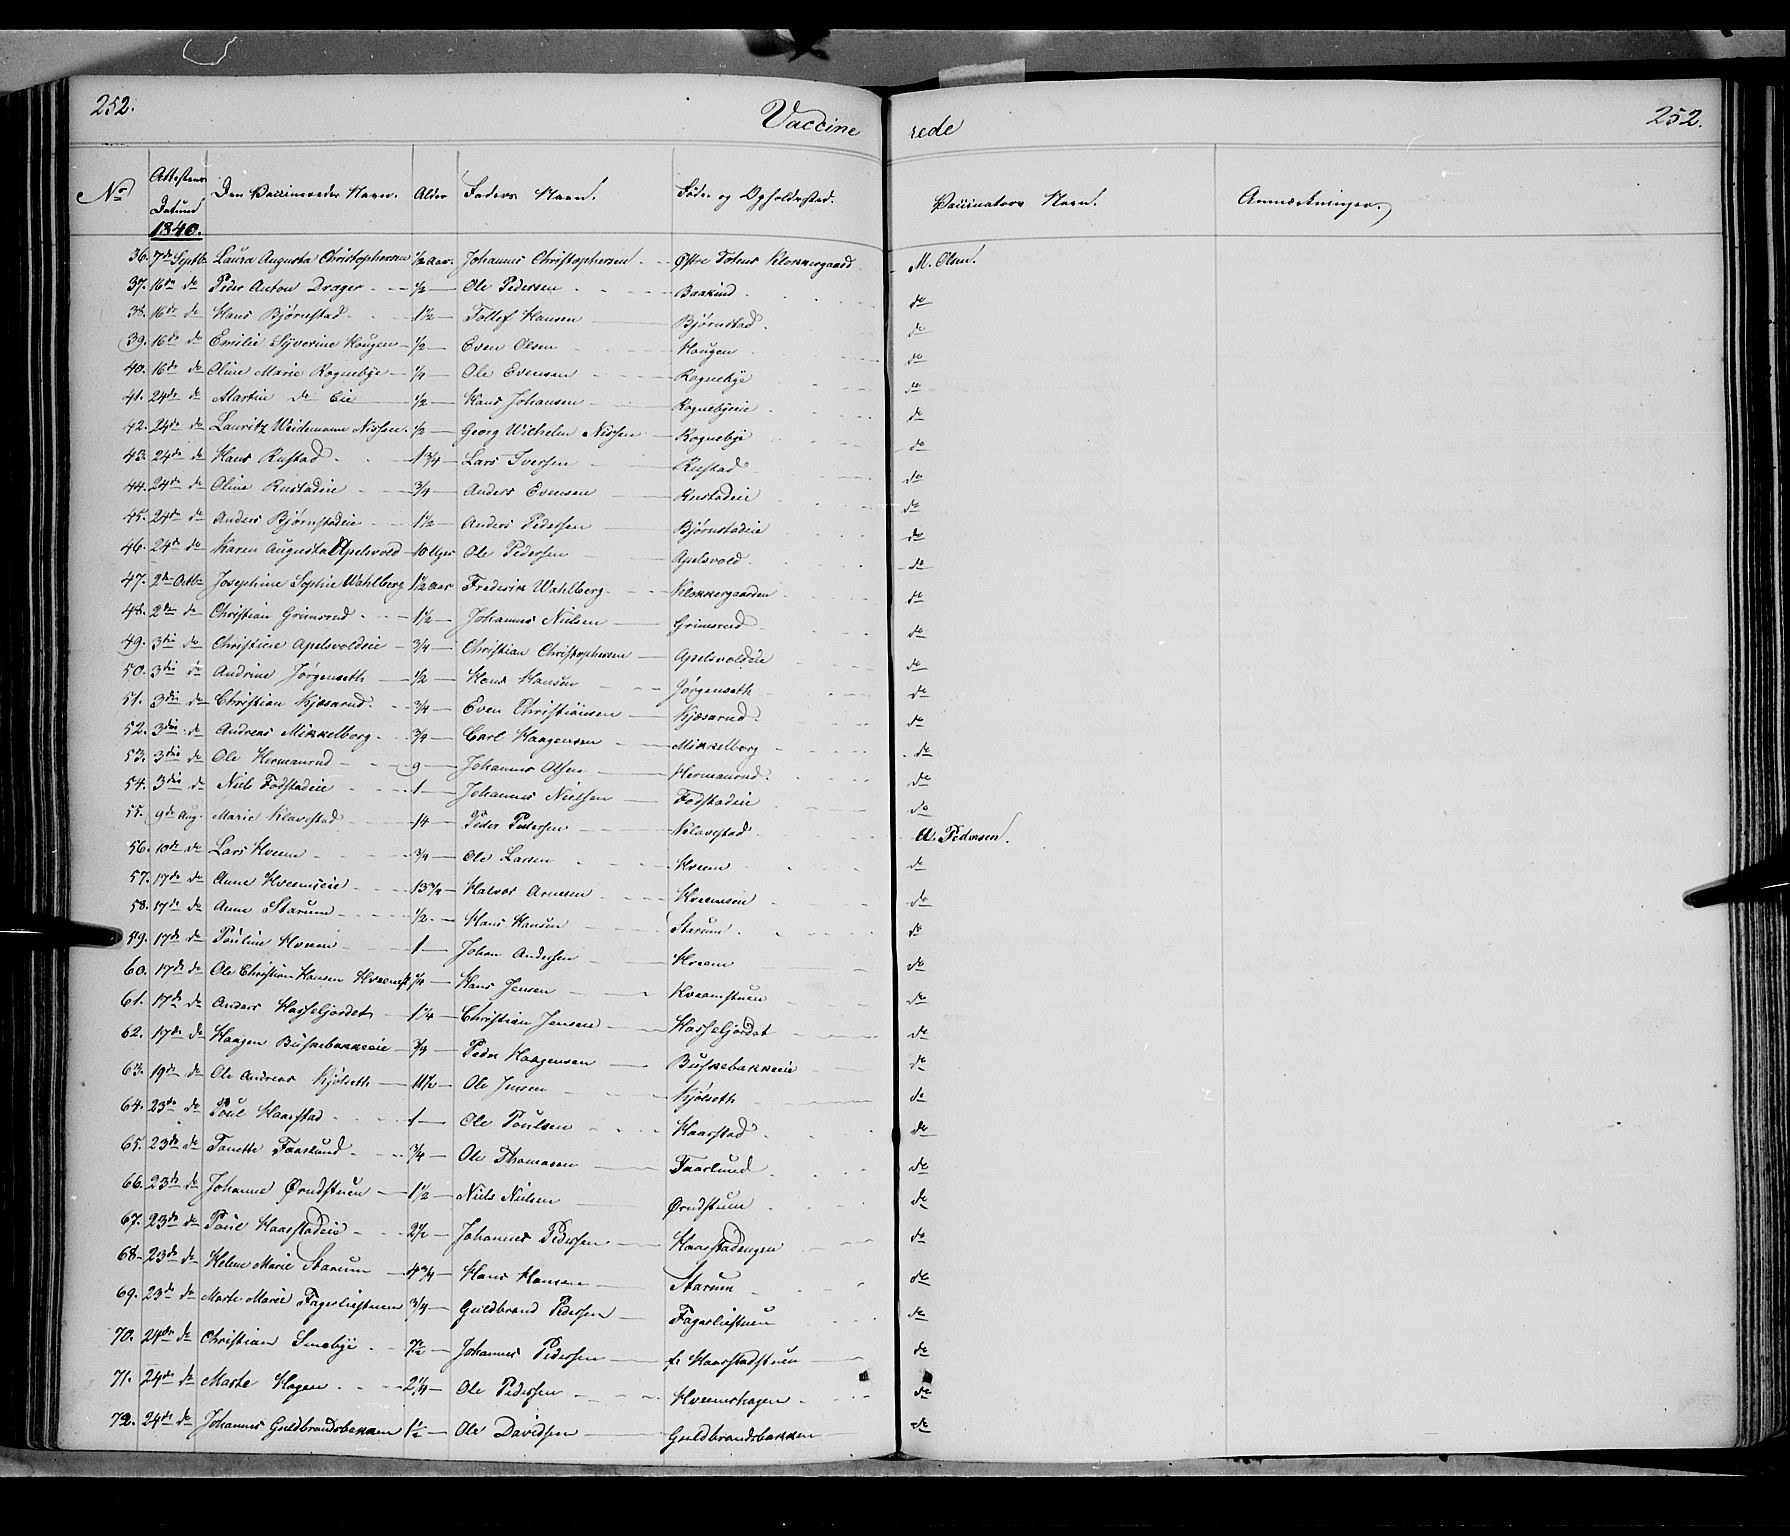 252. Vaccine rede 252.
No Attestens Datum Den Vaccineredes Navn. Alder Faders Navn. Føde- og Opholdssted. Vaccinateurs Navn. Anmærkninger.
1840.
36. 7de Septbr Laura Augusta Christophersen 1/2 aar. Johannes Christophersen Østre Totens Klokkergaard M. Olsen.
37. 16de do Peder Anton Drager 1/2 Ole Pedersen Baakind do
38. 16de do Hans Bjørnstad 1 1/2 Tollef Hansen Bjørnstad. do
39. 16de do Emilie Syverine Hougen 1/2 Even Olsen Hougen do
40. 16de do Oline Marie Rognebye Ole Evensen Rognebye do
41. 24de do Martin do Eie 1/2 Hans Johansen Rognebyeie do
42. 24de do Lauritz Weidemann Nissen. 1/2 Georg Wilhelm Nissen Rognebye do
43. 24de do Hans Rustad 1 3/4 Lars Iversen Rustad do
44. 24de do Oline Rustadeie 3/4 Anders Evensen Rustadeie do
45. 24de do Anders Bjørnstadeie 1 1/2 Anders Pedersen Bjørnstadeie do
46. 24de do Karen Augusta Apelsvold 10 Uger Ole Pedersen Apelsvold. do
47. 2den Octbr Josephine Sophie Wahlberg 1 1/2 aar Frederik Wahlberg Klokkergaarden do
48. 2den do Christian Grimsrud 1 1/2 Johannes Nielsen Grimsrud do
49. 3die do Christine Apelsvoldeie 3/4 Christian Christophersen Apelsvoldeie do
50. 3die do Andrine Jørgenseth 1/2 Hans Hansen Jørgenseth do
51. 3die do Christian Kjæsarud 3/4 Even Christiansen Kjæsarud do
52. 3die do Andreas Mikkelborg 3/4 Carl Haagensen Mikkelborg do
53. 3die do Ole Hermanrud 9 Johannes Olsen Hermanrud. do
54. 3die do Niels Fodstadeie 1 Johannes Nielsen Fodstadeie do
55. 9de Aug. Marie Klavestad 14 Peder Pedersen Klavestad A. Pedersen.
56. 10de do Lars Kveem 3/4 Ole Larsen Kveem do
57. 17de do Anne Kveemseie 13 3/4 Halvor Arnesen Kveemseie do
58. 17de do Anne Starum 1/2 Hans Hansen Starum. do
59. 17de do Pouline Kveem 1 Johan Andersen Kveem do
60. 17de do Ole Christian Hansen Kveemst. Hans Jensen Kveemstuen do
61. 17de do Anders Hasselgjordet 1 1/4 Christian Jensen Hasselgjordet do
62. 17de do Haagen Buskebakkeeie 3/4 Peder Haagensen Buskebakkeeie do
63. 19de do Ole Andreas Kjølseth 11 1/2 Ole Jensen Kjølseth do
64. 23de do Poul Haarstad 1 Ole Poulsen Haarstad do
65. 23de do Tonette Faarlund 3/4 Ole Thomasen Faarlund do
66. 23de do Johanne Ørudstuen 1 1/2 Niels Nielsen Ørudstuen do
67. 23de do Poul Haarstadeie Johannes Pedersen Haarstadengen do
68. 23de do Helene Marie Starum 4 3/4 Hans Hansen Starum do
69. 23de do Marte Marie Fagerliestuen 3/4 Guldbrand Pedersen Fagerliestuen do
70. 24de do Christian Sinebye 7 1/2 Johannes Pedersen f. Haarstadstuen do
71. 24de do Marte Hagen 2 1/4 Ole Pedersen Kveemshagen do
72. 24de do Johannes Guldbrandsbakken 1 1/2 Ole Davidsen Guldbrandsbakken do